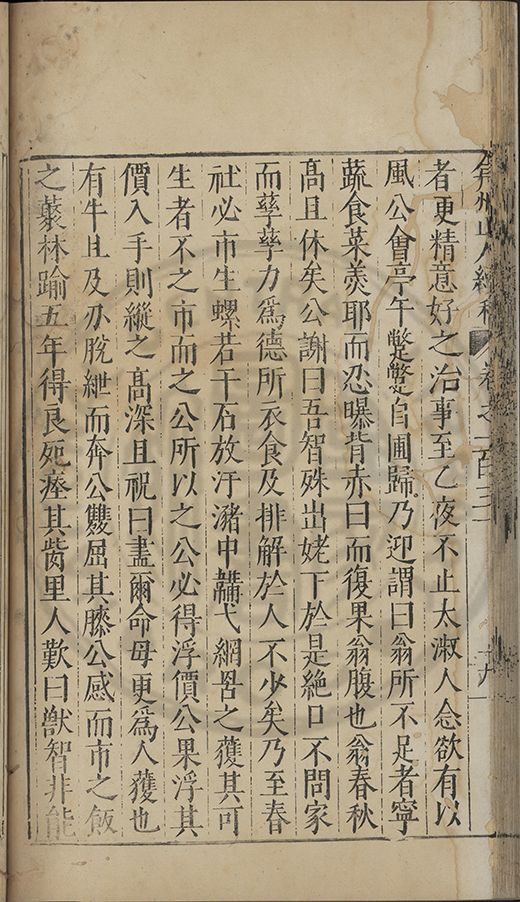 弇州山人續稿 卷之一百三
者更精意好之治事至乙夜不止太淑人念欲有以
風公會亭午蹩蹩自圃歸乃迎謂曰翁所不足者寧
蔬食菜羮耶而忍曝背赤日而復果翁腹也翁春秋
髙且休矣公謝曰吾智殊出姥下於是絕口不問家
而孳孳力爲德所衣食及排解於人不少矣乃至春
社必市生螺若干石放汙瀦中韝弋網罟之獲其可
生者不之市而之公所以之公必得浮價公果浮其
價入手則縱之髙深且祝曰盡爾命毋更爲人獲也
有牛且及刃脫紲而奔公雙屈其膝公感而市之飯
之藂林踰五年得良死瘞其胔里人歎曰獸智非能